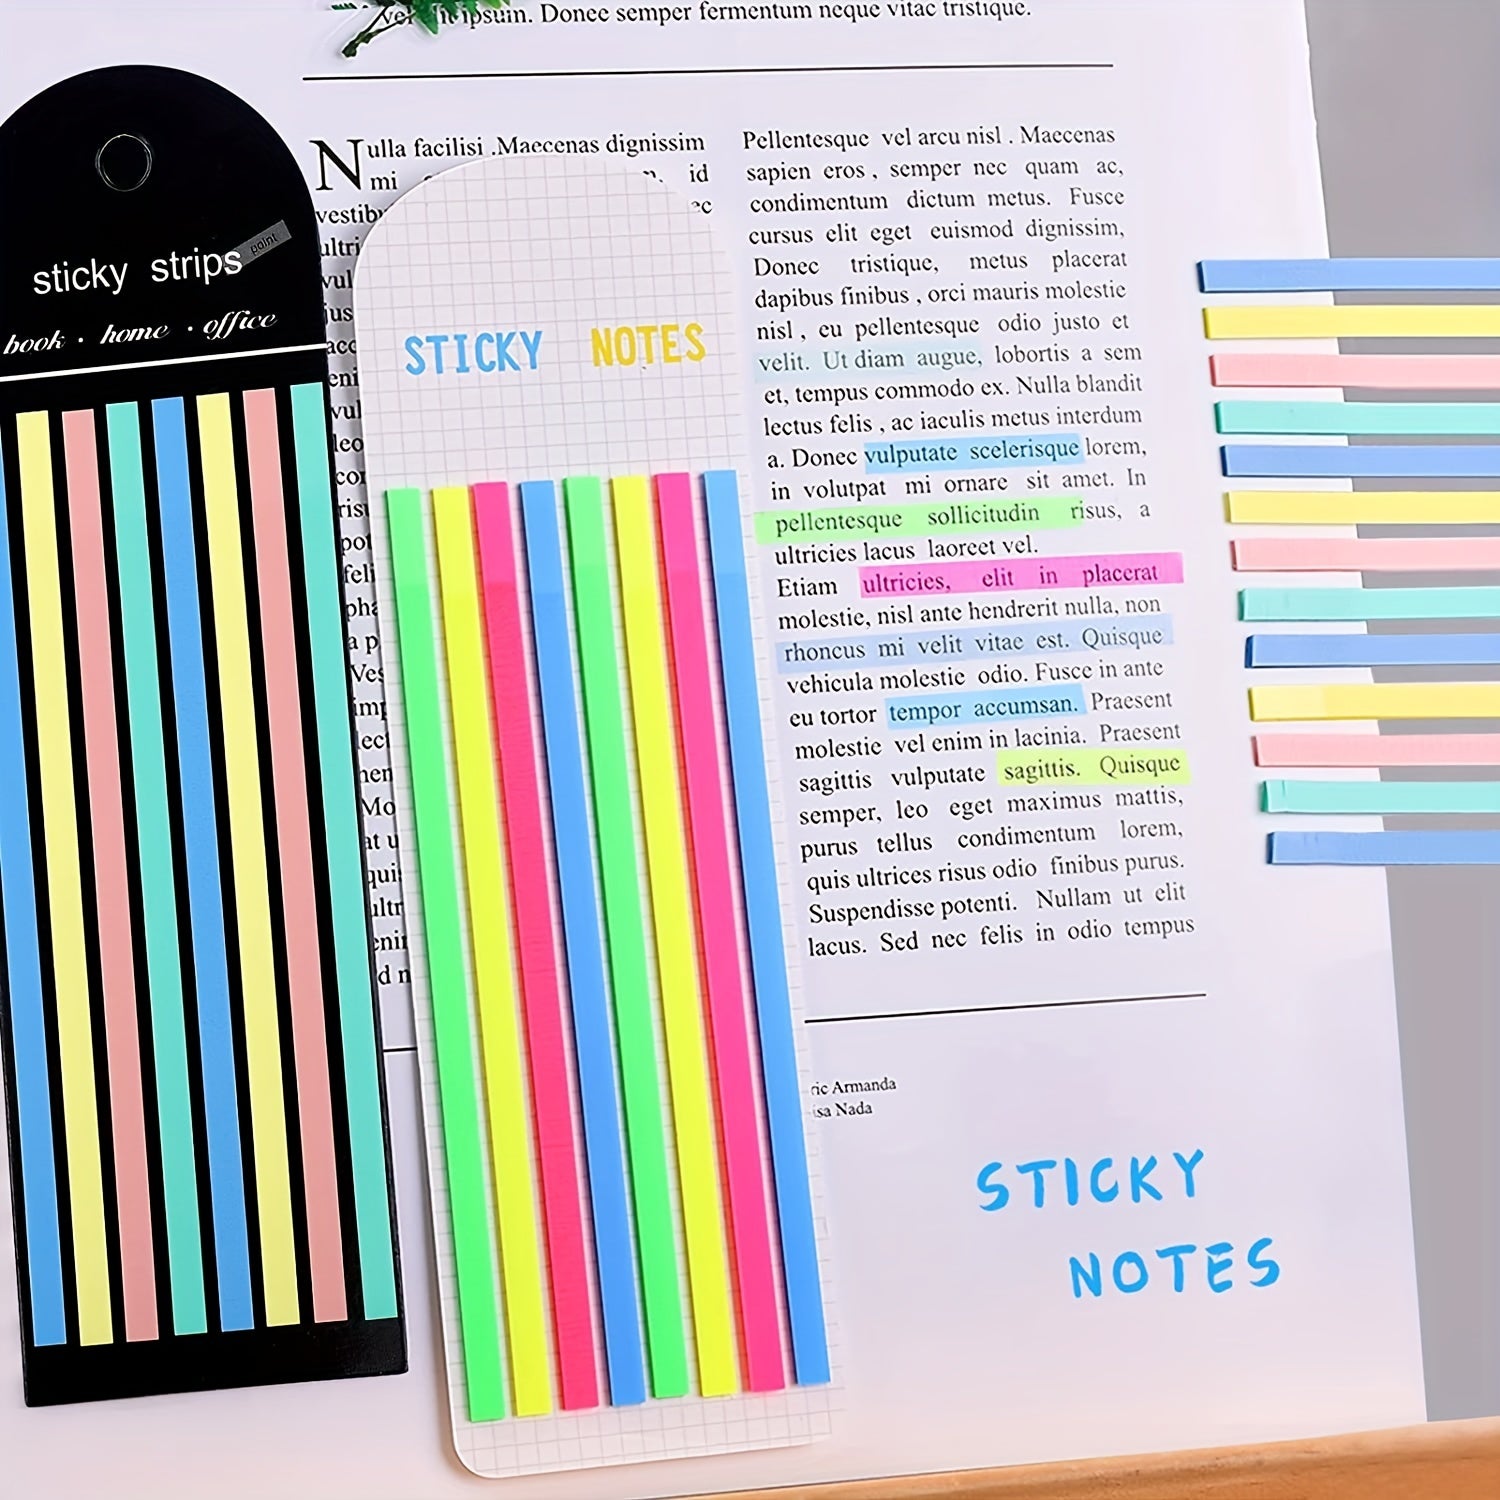 ipsum. Donec semper fermentum neque vitae tristique.
sticky strips
point
book · home · office
Nulla facilisi .Maecenas dignissim
mi id
STICKY NOTES
Pellentesque vel arcu nisl . Maecenas
sapien eros , semper nec quam ac,
condimentum dictum metus. Fusce
cursus elit eget euismod dignissim,
Donec tristique, metus placerat
dapibus finibus , orci mauris molestie
nisl , eu pellentesque odio justo et
velit. Ut diam augue, lobortis a sem
et, tempus commodo ex. Nulla blandit
lectus felis , ac iaculis metus interdum
a. Donec vulputate scelerisque lorem,
in volutpat mi ornare sit amet. In
pellentesque sollicitudin risus, a
ultricies lacus laoreet vel.
Etiam ultricies, elit in placerat
molestie, nisl ante hendrerit nulla, non
rhoncus mi velit vitae est. Quisque
vehicula molestie odio. Fusce in ante
eu tortor tempor accumsan. Praesent
molestie vel enim in lacinia. Praesent
sagittis vulputate sagittis. Quisque
semper, leo eget maximus mattis,
purus tellus condimentum lorem,
quis ultrices risus odio finibus purus.
Suspendisse potenti. Nullam ut elit
lacus. Sed nec felis in odio tempus
Armanda
Nada
STICKY
NOTES